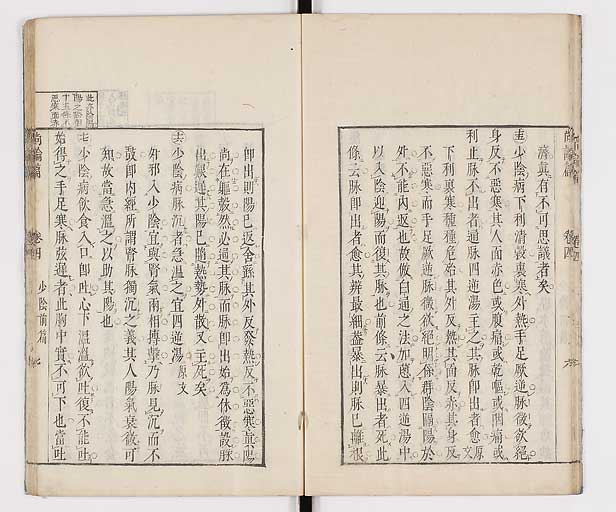 濟眞有不可思議者矣
圭少陰病下利清穀裏寒外熱手足厥逆脉微欲絕
身反不惡寒其人面赤色或腹痛或乾嘔或咽痛或
利止脉不出者通脉四逆湯主之其脉即出者愈原文
下利裏寒種種危殆其外反熱其面反赤其身反
不惡寒而手足厥逆脉微欲絕明係群陰隔陽於
外不能内返也故倣白通之法加葱入四逆湯中
以入陰迎陽而復其脉也前條云脉暴出者死此
條云脉即出者愈其辨最細葢暴出則脉已離根
即出則陽已返舍繇其外反發熱反不惡寒眞陽
尚在軀殼然必通其脉而脉即出始爲休徵設脉
出艱遲其陽已隨熱勢外散又主死矣
去少陰病脉沉者急溫之宜四逆湯原文
外邪入少陰宜與腎氣兩相搏擊乃脉見沉而不
鼓即内經所謂腎脉獨沉之義其人陽氣衰微可
知故當急溫之以助其陽也
少陰病飲食入口即吐心下溫溫欲吐復不能吐
始得之手足寒脉弦遲者此胸中實不可下也當吐
尚論篇
卷四
少陰前篇